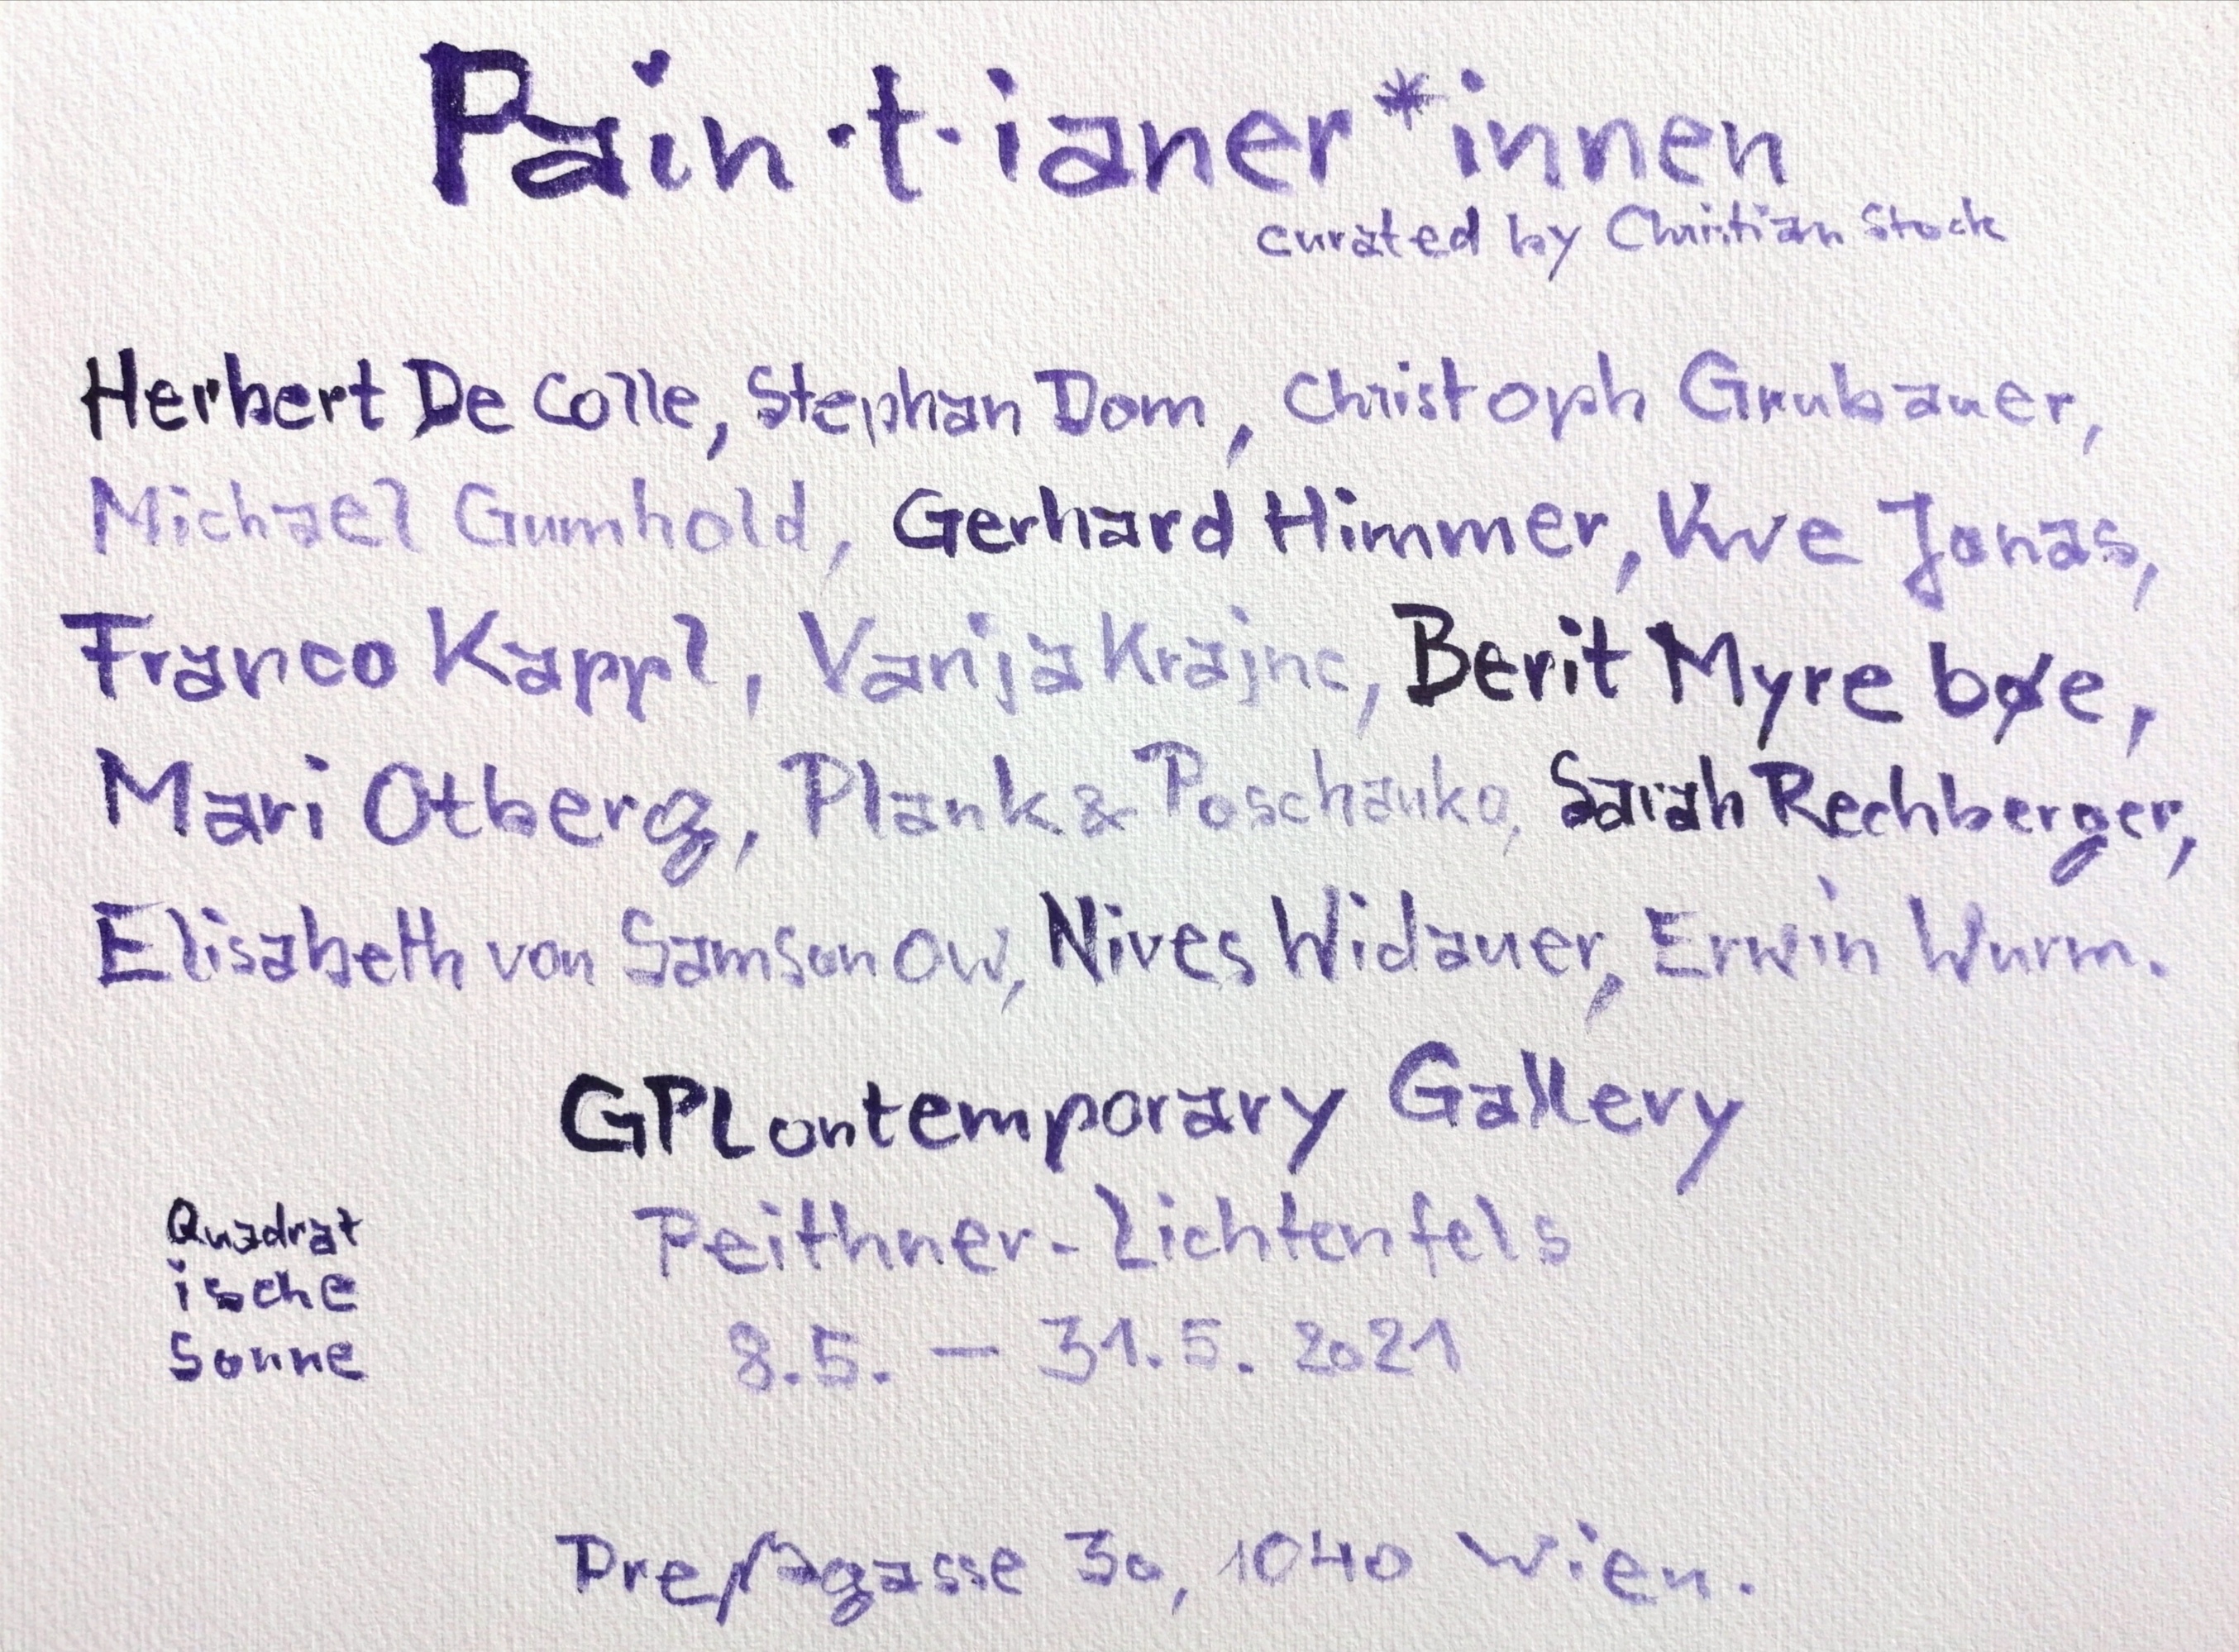 Pain·t·ianer*innen
curated by Christian Stock
Herbert De Colle, Stephan Dom, Christoph Grubauer,
Michael Gumhold, Gerhard Himmer, Uwe Jonas,
Franco Kappl, Vanja Krajnc, Berit Myrebøe,
Mari Otberg, Plank & Poschauko, Sarah Rechberger,
Elisabeth von Samsonow, Nives Widauer, Erwin Wurm.
GPLontemporary Gallery
Peithner-Lichtenfels
8.5. – 31.5. 2021
Quadrat
ische
Sonne
Preßgasse 30, 1040 Wien.